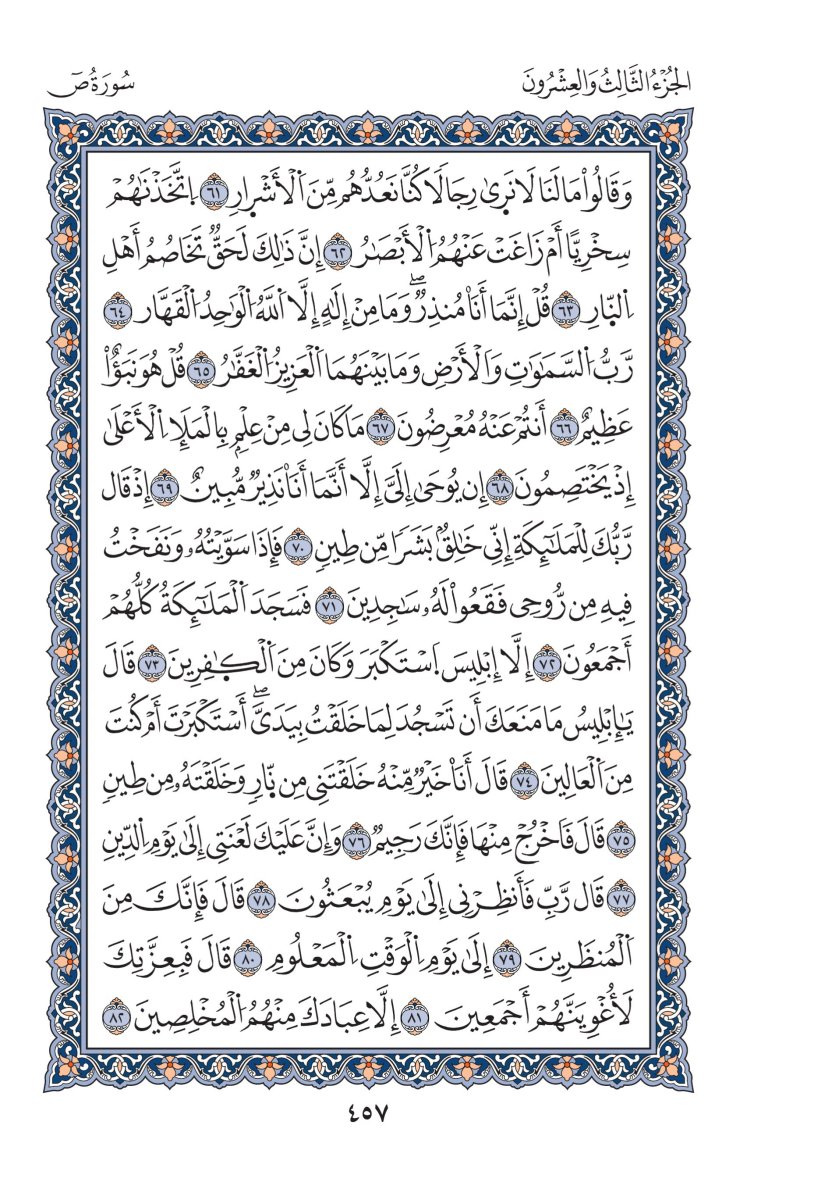 الجُزْءُ الثَّالِثُ وَالعِشْرُونَ
سُورَةُ صٓ
وَقَالُواْ مَا لَنَا لَا نَرَىٰ رِجَالٗا كُنَّا نَعُدُّهُم مِّنَ ٱلۡأَشۡرارِ ٦١ ٱتَّخَذۡنَٰهُمۡ
سِخۡرِيًّا أَمۡ زَاغَتۡ عَنۡهُمُ ٱلۡأَبۡصَٰرُ ٦٢ إِنَّ ذَٰلِكَ لَحَقّٞ تَخَاصُمُ أَهۡلِ
ٱلنّارِ ٦٣ قُلۡ إِنَّمَا أَنَا۠ مُنذِرٞۖ وَمَا مِنۡ إِلَٰهٍ إِلَّا ٱللَّهُ ٱلۡوَٰحِدُ ٱلۡقَهَّارُ ٦٤
رَبُّ ٱلسَّمَٰوَٰتِ وَٱلۡأَرۡضِ وَمَا بَيۡنَهُمَا ٱلۡعَزِيزُ ٱلۡغَفَّٰرُ ٦٥ قُلۡ هُوَ نَبَؤٌاْ
عَظِيمٌ ٦٦ أَنتُمۡ عَنۡهُ مُعۡرِضُونَ ٦٧ مَا كَانَ لِي مِنۡ عِلۡمِۭ بِٱلۡمَلَإِ ٱلۡأَعۡلَىٰ
إِذۡ يَخۡتَصِمُونَ ٦٨ إِن يُوحَىٰ إِلَيَّ إِلَّا أَنَّمَا أَنَا۠ نَذِيرٞ مُّبِينٌ ٦٩ إِذۡ قَال
رَّبُّكَ لِلۡمَلَٰٓئِكَةِ إِنِّي خَٰلِقُۢ بَشَرٗا مِّن طِينٖ ٧٠ فَإِذَا سَوَّيۡتُهُۥ وَنَفَخۡتُ
فِيهِ مِن رُّوحِي فَقَعُواْ لَهُۥ سَٰجِدِينَ ٧١ فَسَجَدَ ٱلۡمَلَٰٓئِكَةُ كُلُّهُمۡ
أَجۡمَعُونَ ٧٢ إِلَّا إِبۡلِيسَ ٱسۡتَكۡبَرَ وَكَانَ مِنَ ٱلۡكٰفِرِينَ ٧٣ قَالَ
يَٰإِبۡلِيسُ مَا مَنَعَكَ أَن تَسۡجُدَ لِمَا خَلَقۡتُ بِيَدَيَّۖ أَسۡتَكۡبَرۡتَ أَمۡ كُنتَ
مِنَ ٱلۡعَالِينَ ٧٤ قَالَ أَنَا۠ خَيۡرٞ مِّنۡهُ خَلَقۡتَنِي مِن نّارٖ وَخَلَقۡتَهُۥ مِن طِينٖ
٧٥ قَالَ فَٱخۡرُجۡ مِنۡهَا فَإِنَّكَ رَجِيمٞ ٧٦ وَإِنَّ عَلَيۡكَ لَعۡنَتِي إِلَىٰ يَوۡمِ ٱلدِّينِ
٧٧ قَال رَّبِّ فَأَنظِرۡنِي إِلَىٰ يَوۡمِ يُبۡعَثُونَ ٧٨ قَالَ فَإِنَّكَ مِنَ
ٱلۡمُنظَرِينَ ٧٩ إِلَىٰ يَوۡمِ ٱلۡوَقۡتِ ٱلۡمَعۡلُومِ ٨٠ قَالَ فَبِعِزَّتِكَ
لَأُغۡوِيَنَّهُمۡ أَجۡمَعِينَ ٨١ إِلَّا عِبَادَكَ مِنۡهُمُ ٱلۡمُخۡلِصِينَ ٨٢
٤٥٧